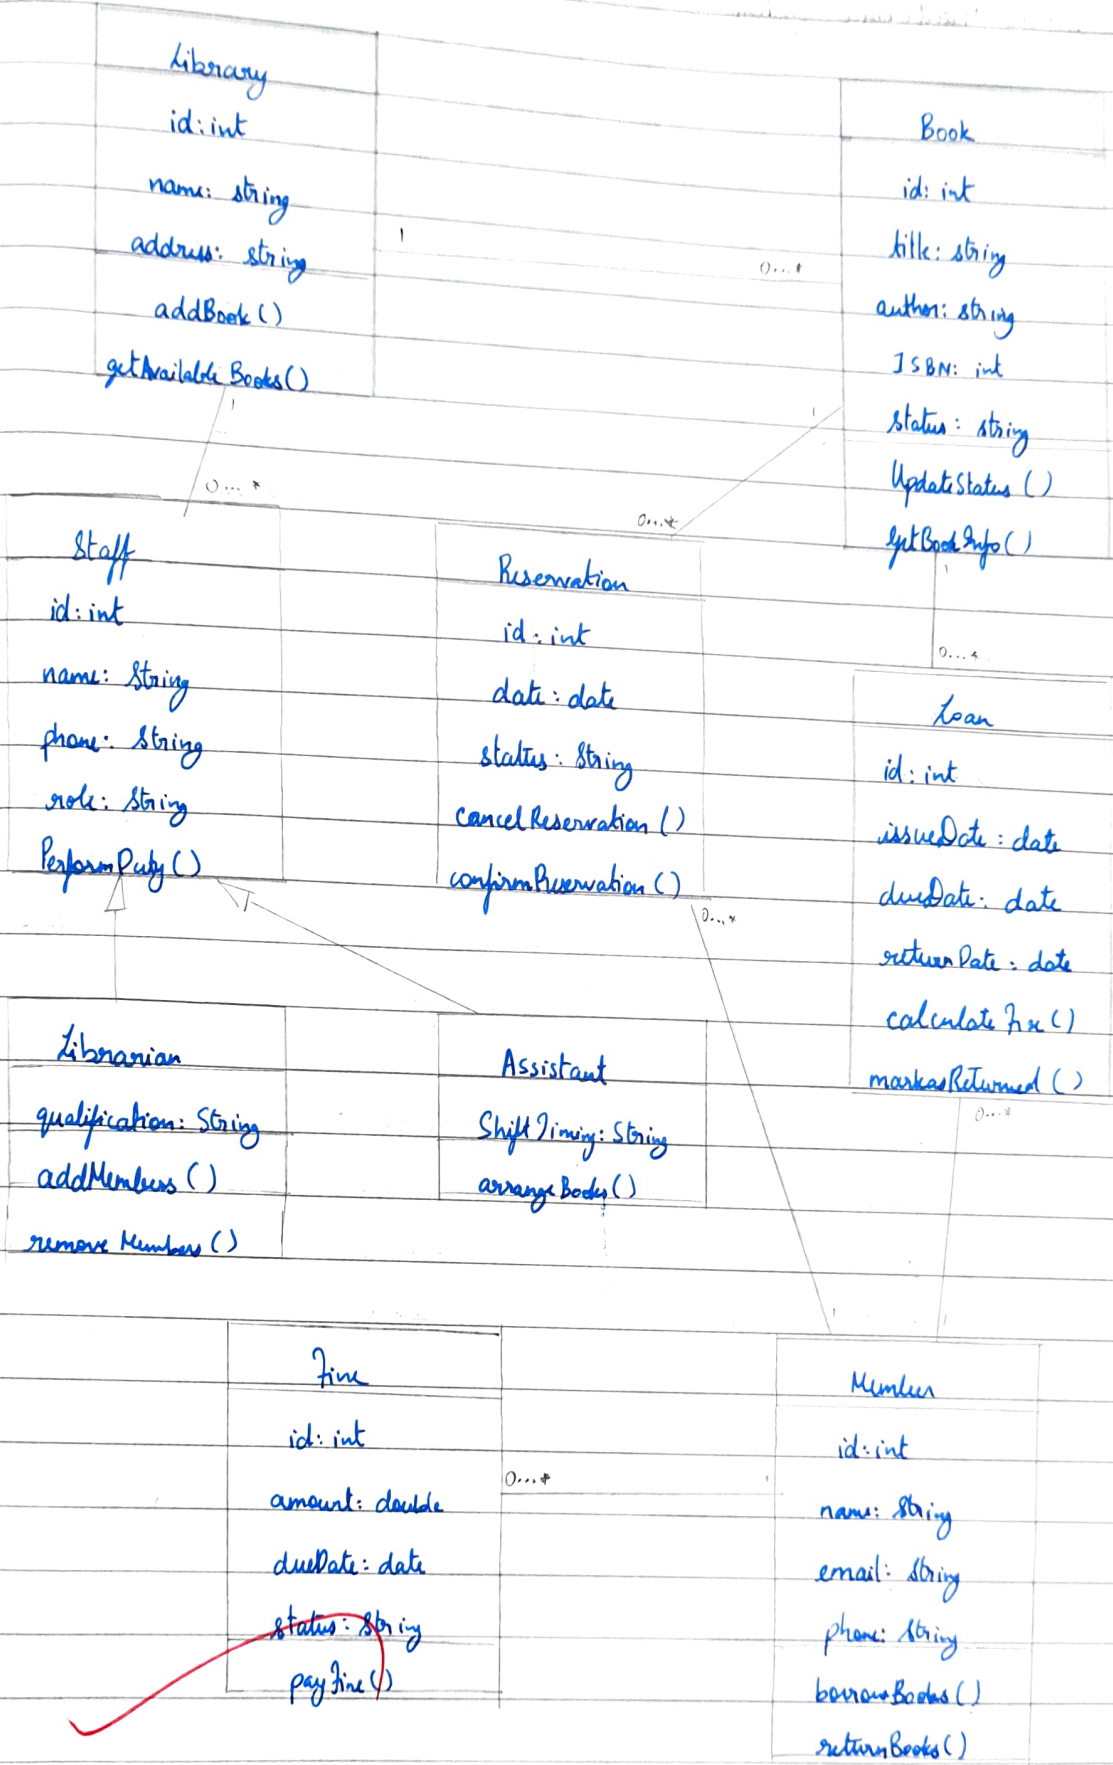 Library
id: int
name: string
address: string
addBook()
getAvailableBooks()
1
0...*
Book
id: int
title: string
author: string
ISBN: int
status: string
UpdateStatus()
getBookInfo()
1
0...*
1
0...*
1
0...*
Staff
id: int
name: String
phone: String
role: String
PerformDuty()
Reservation
id: int
date: date
status: String
cancelReservation()
confirmReservation()
0...*
Loan
id: int
issueDate: date
dueDate: date
returnDate: date
calculateFine()
markasReturned()
0...*
Librarian
qualification: String
addMembers()
remove Members()
Assistant
ShiftTiming: String
arrangeBooks()
1
1
Fine
id: int
amount: double
dueDate: date
status: String
payFine()
0...*
1
Member
id: int
name: String
email: String
phone: String
borrowBooks()
returnBooks()